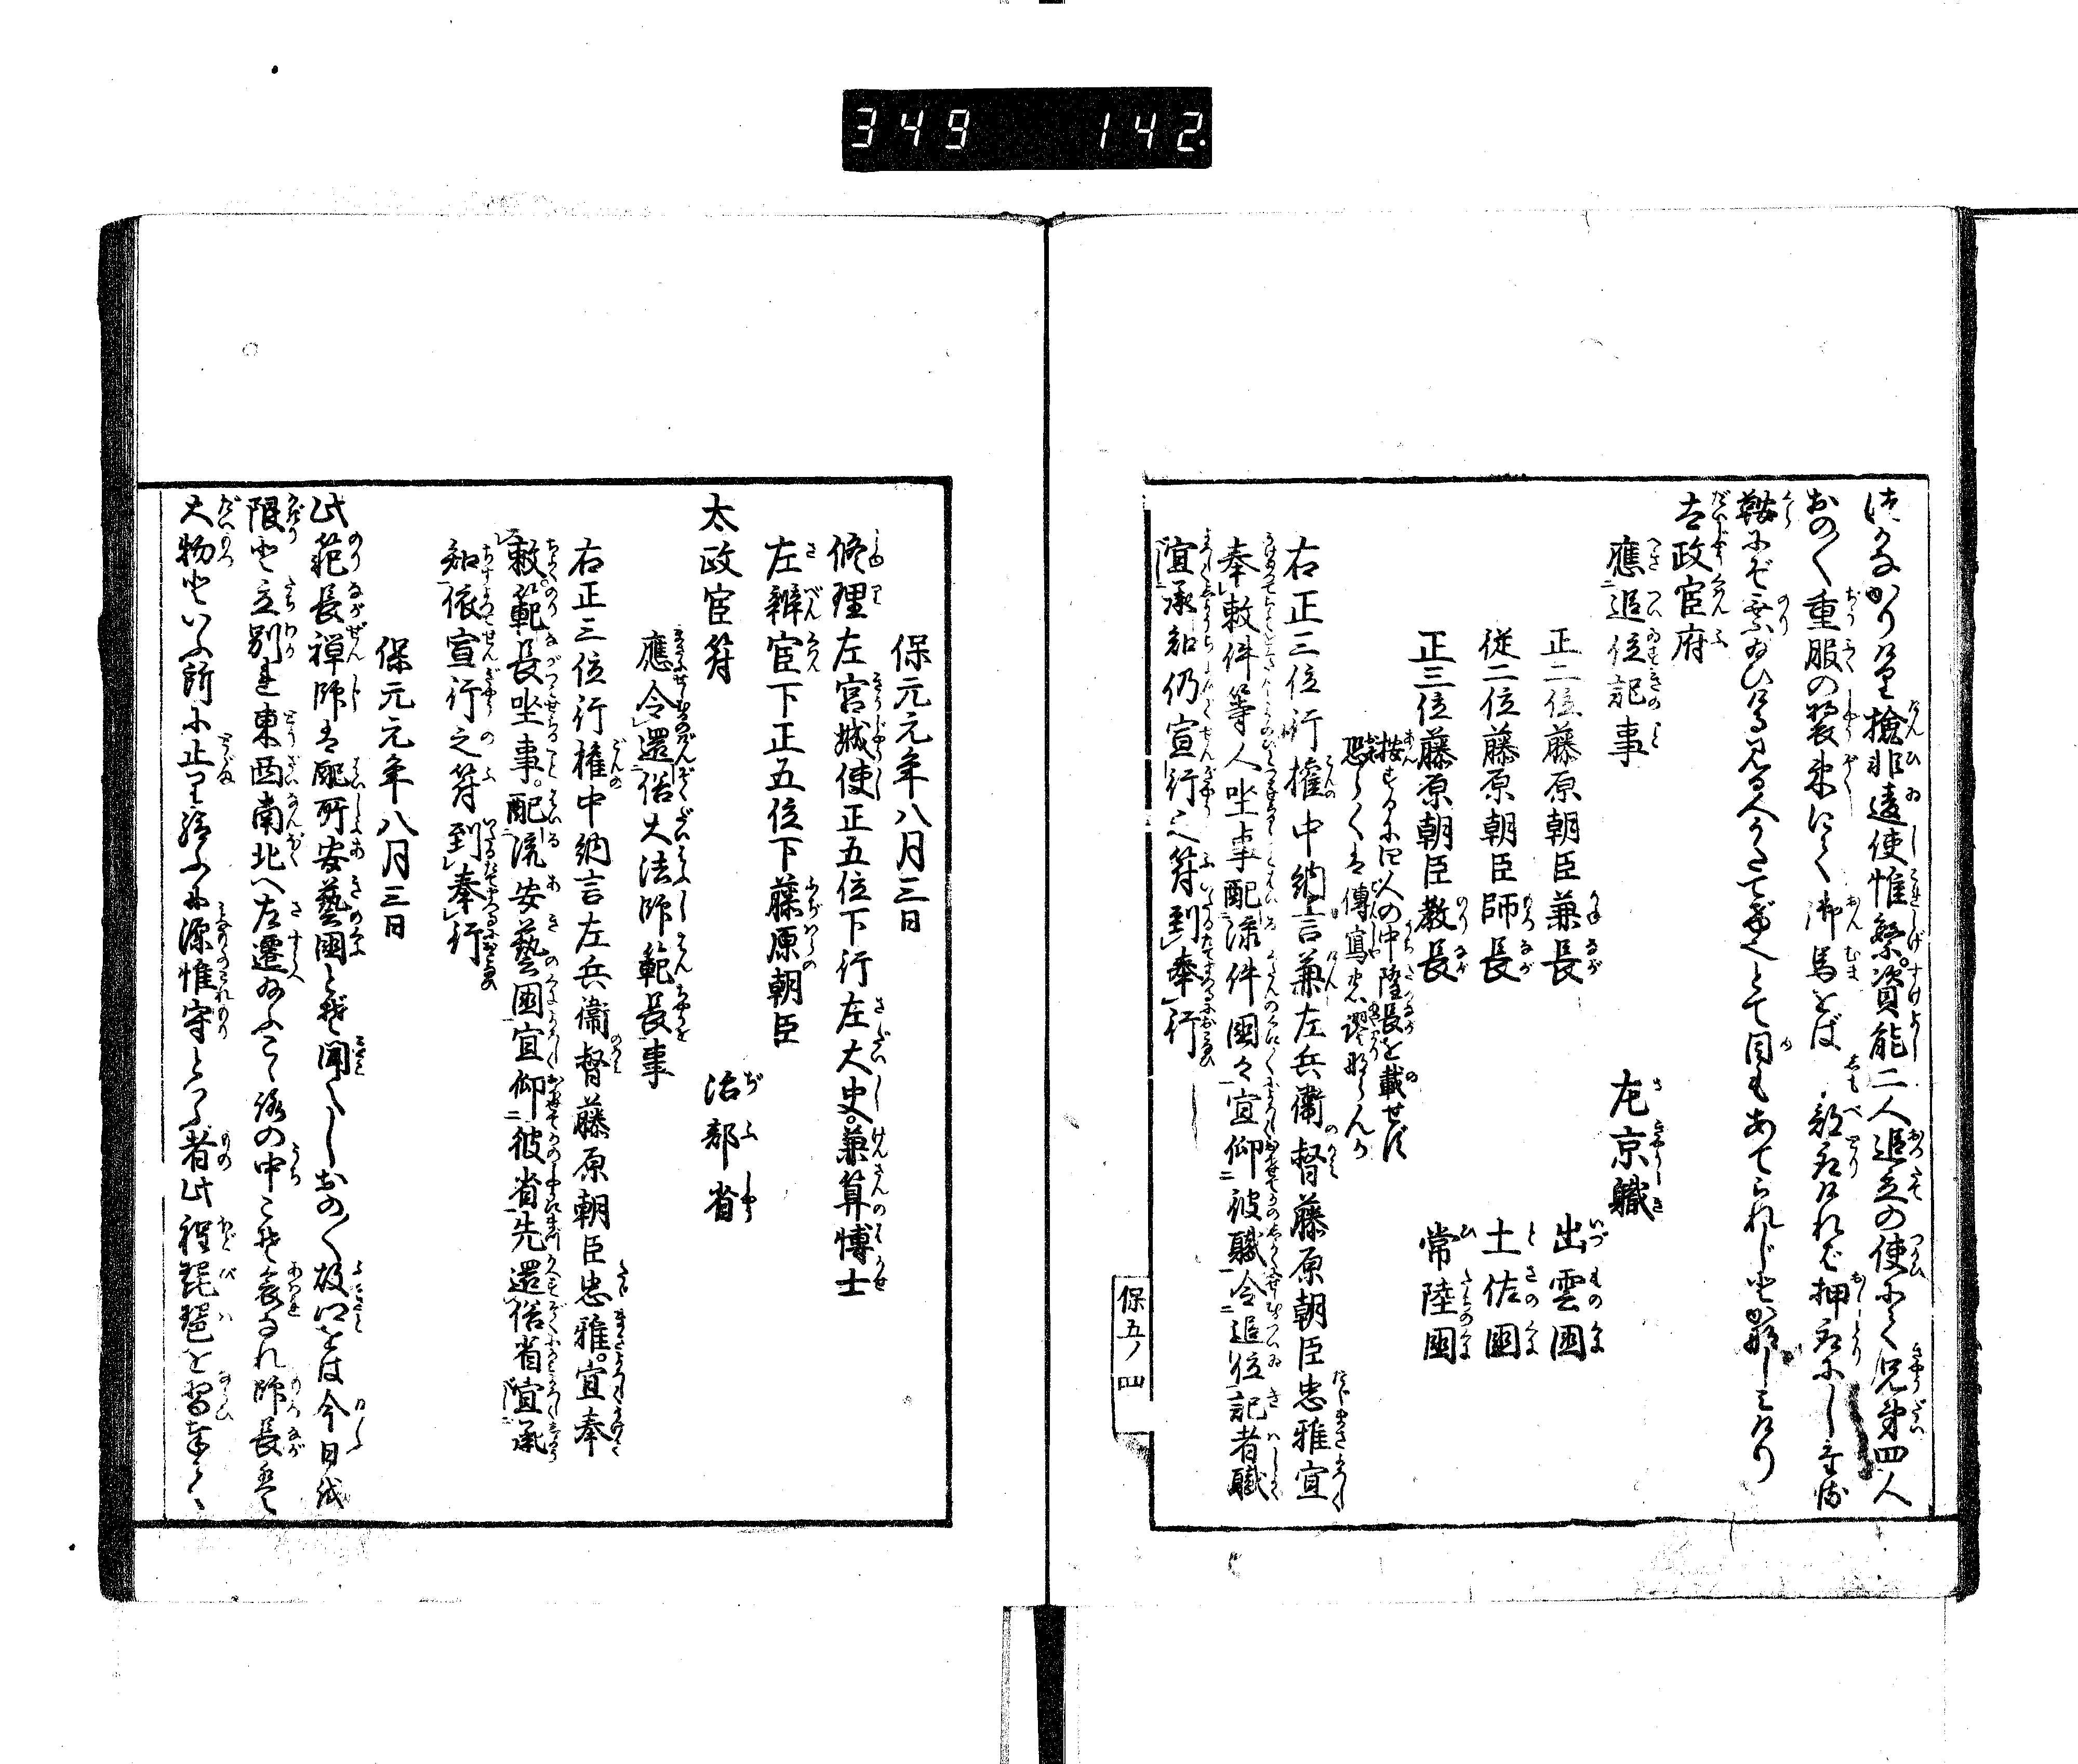 349 142.
はしなかりけり檢非違使惟繁資能二人追立の使にて兄弟四人
おの〱重服の装束にて御馬をば
鞍にぞ乗給ひける見る人うたてさよとて目もあてられず
太政官府
應追位記事 左京職
正二位藤原朝臣兼長 出雲国
従二位藤原朝臣師長 土佐國
正三位藤原朝臣教長 常陸國
按ずるに四人の中隆長を載せず
恐らくは傳寫 謬ならんか
右正三位行權中納言兼左兵衞督藤原朝臣忠雅宣
奉敕件等人坐事配流件國々宜仰彼職令追位記者職
宜承知仍宣行之符到奉行
保五ノ 四
保元元年八月三日
修理左宮城使正五位下行左大史兼算博士
左辨官下正五位下藤原朝臣
太政官符 治部省
應令還俗大法師範長事
右正三位行權中納言左兵衞督藤原朝臣忠雅宣奉
敕範長坐事配流安藝國宜仰彼省先還俗省宜承
知依宣行之符到奉行
保元元年八月三日
此範長禅師は配所安藝國とぞ聞えしおの〱故郷をば今日を
限と立別れ東西南北へ左遷給ふこゝろの中こそ哀なれ師長は
大物といふ所に止り給ふに源惟守といふ者此程琵琶を習奉りて